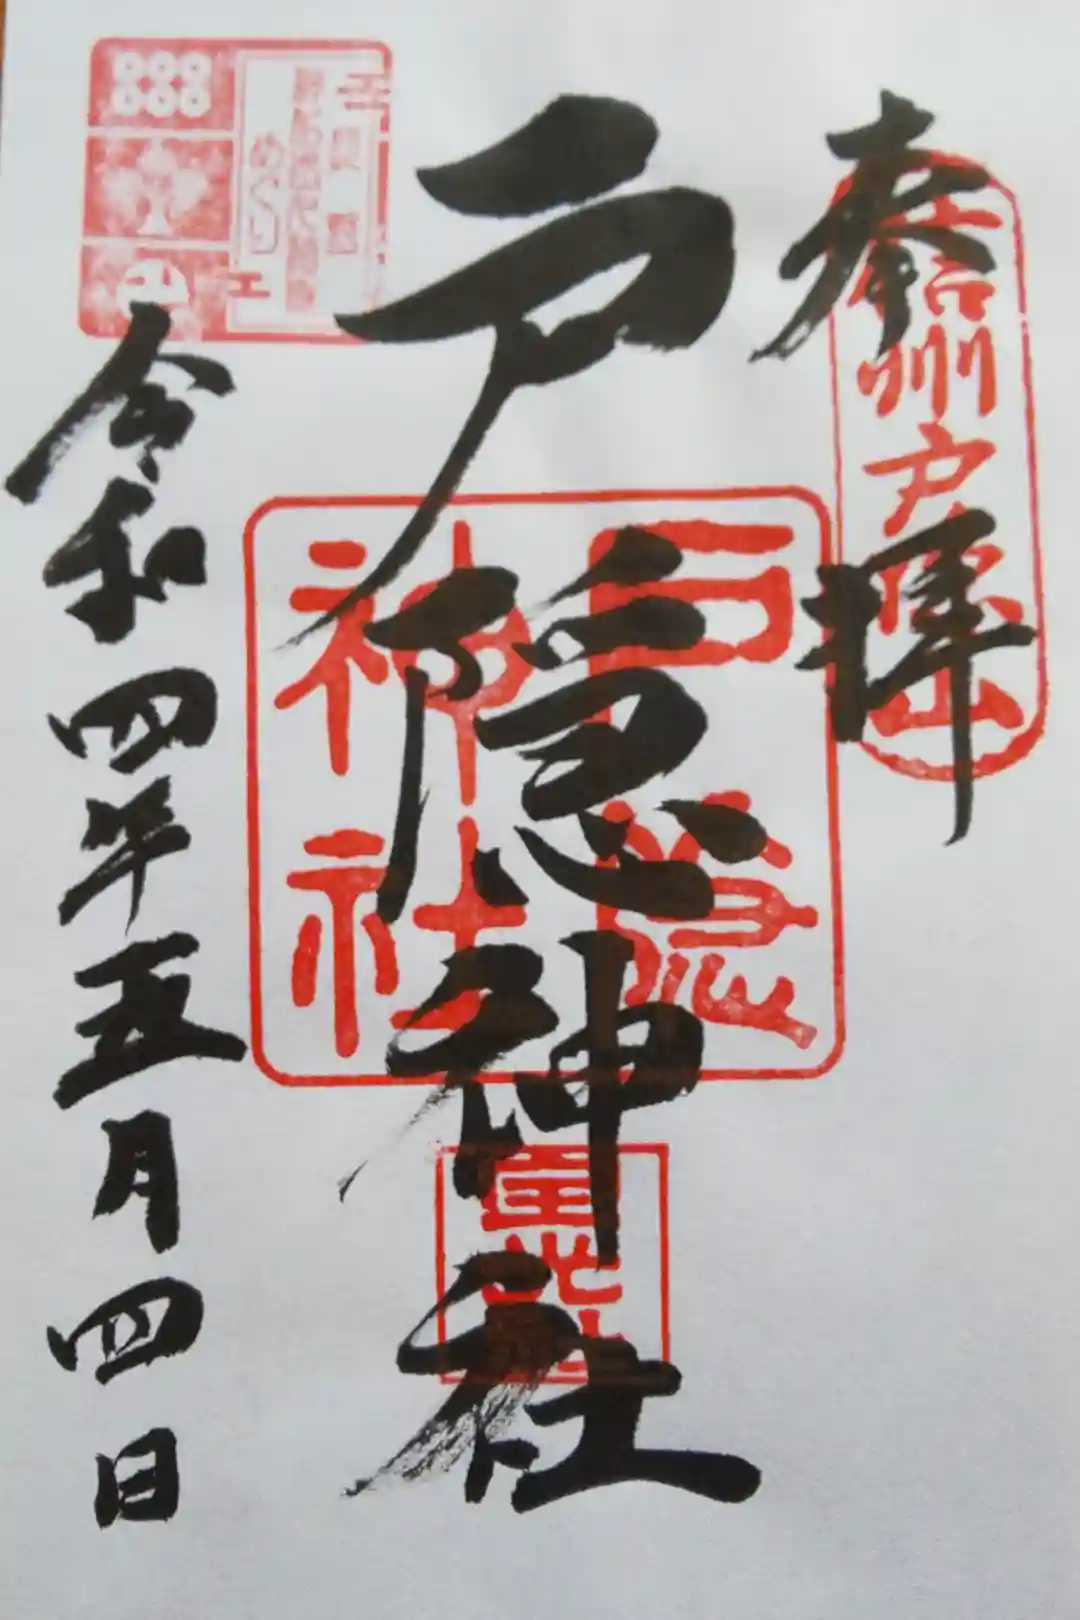 奉拝
信州戸隠山
戸隠神社
戸隠
神社
宝光社
めぐり
令和四年五月四日